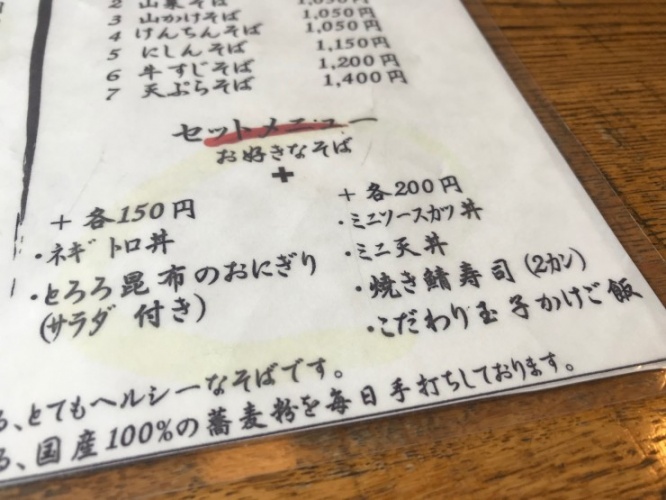 2 山菜そば 1,050円
3 山かけそば 1,050円
4 けんちんそば 1,050円
5 にしんそば 1,150円
6 牛すじそば 1,200円
7 天ぷらそば 1,400円
セットメニュー
お好きなそば
+
+ 各150円
・ネギトロ丼
・とろろ昆布のおにぎり
(サラダ 付き)
+ 各200円
・ミニソースカツ丼
・ミニ天丼
・焼き鯖寿司(2カン)
・こだわり玉子かけご飯
る、とてもヘルシーなそばです。
る、国産100%の蕎麦粉を毎日手打ちしております。